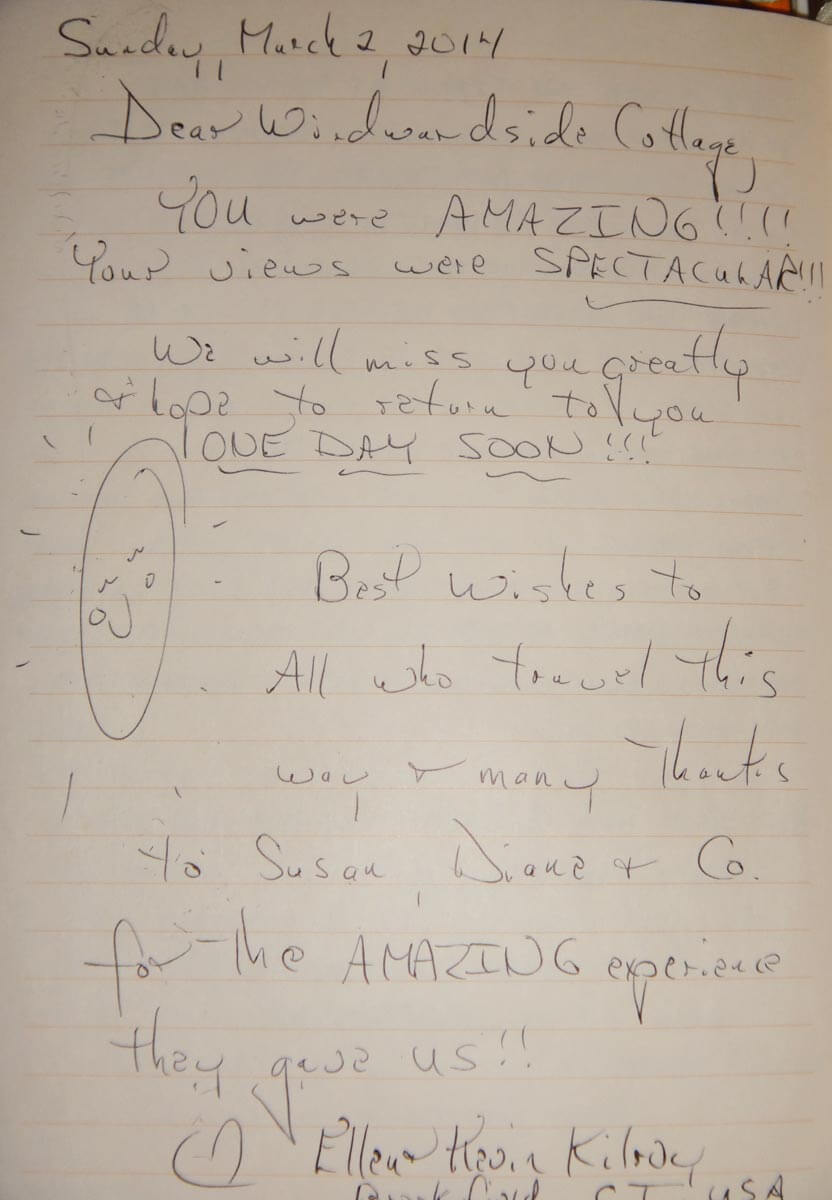 Sunday, March 2, 2014
Dear Windwardside Cottage,
YOU were AMAZING!!!!
Your views were SPECTACULAR!!!
We will miss you greatly
& hope to return to you
ONE DAY SOON!!!
Best Wishes to
All who travel this
way & many Thanks
to Susan, Diane & Co.
for the AMAZING experience
they gave us!!
Ellen & Kevin Kilroy
CT USA